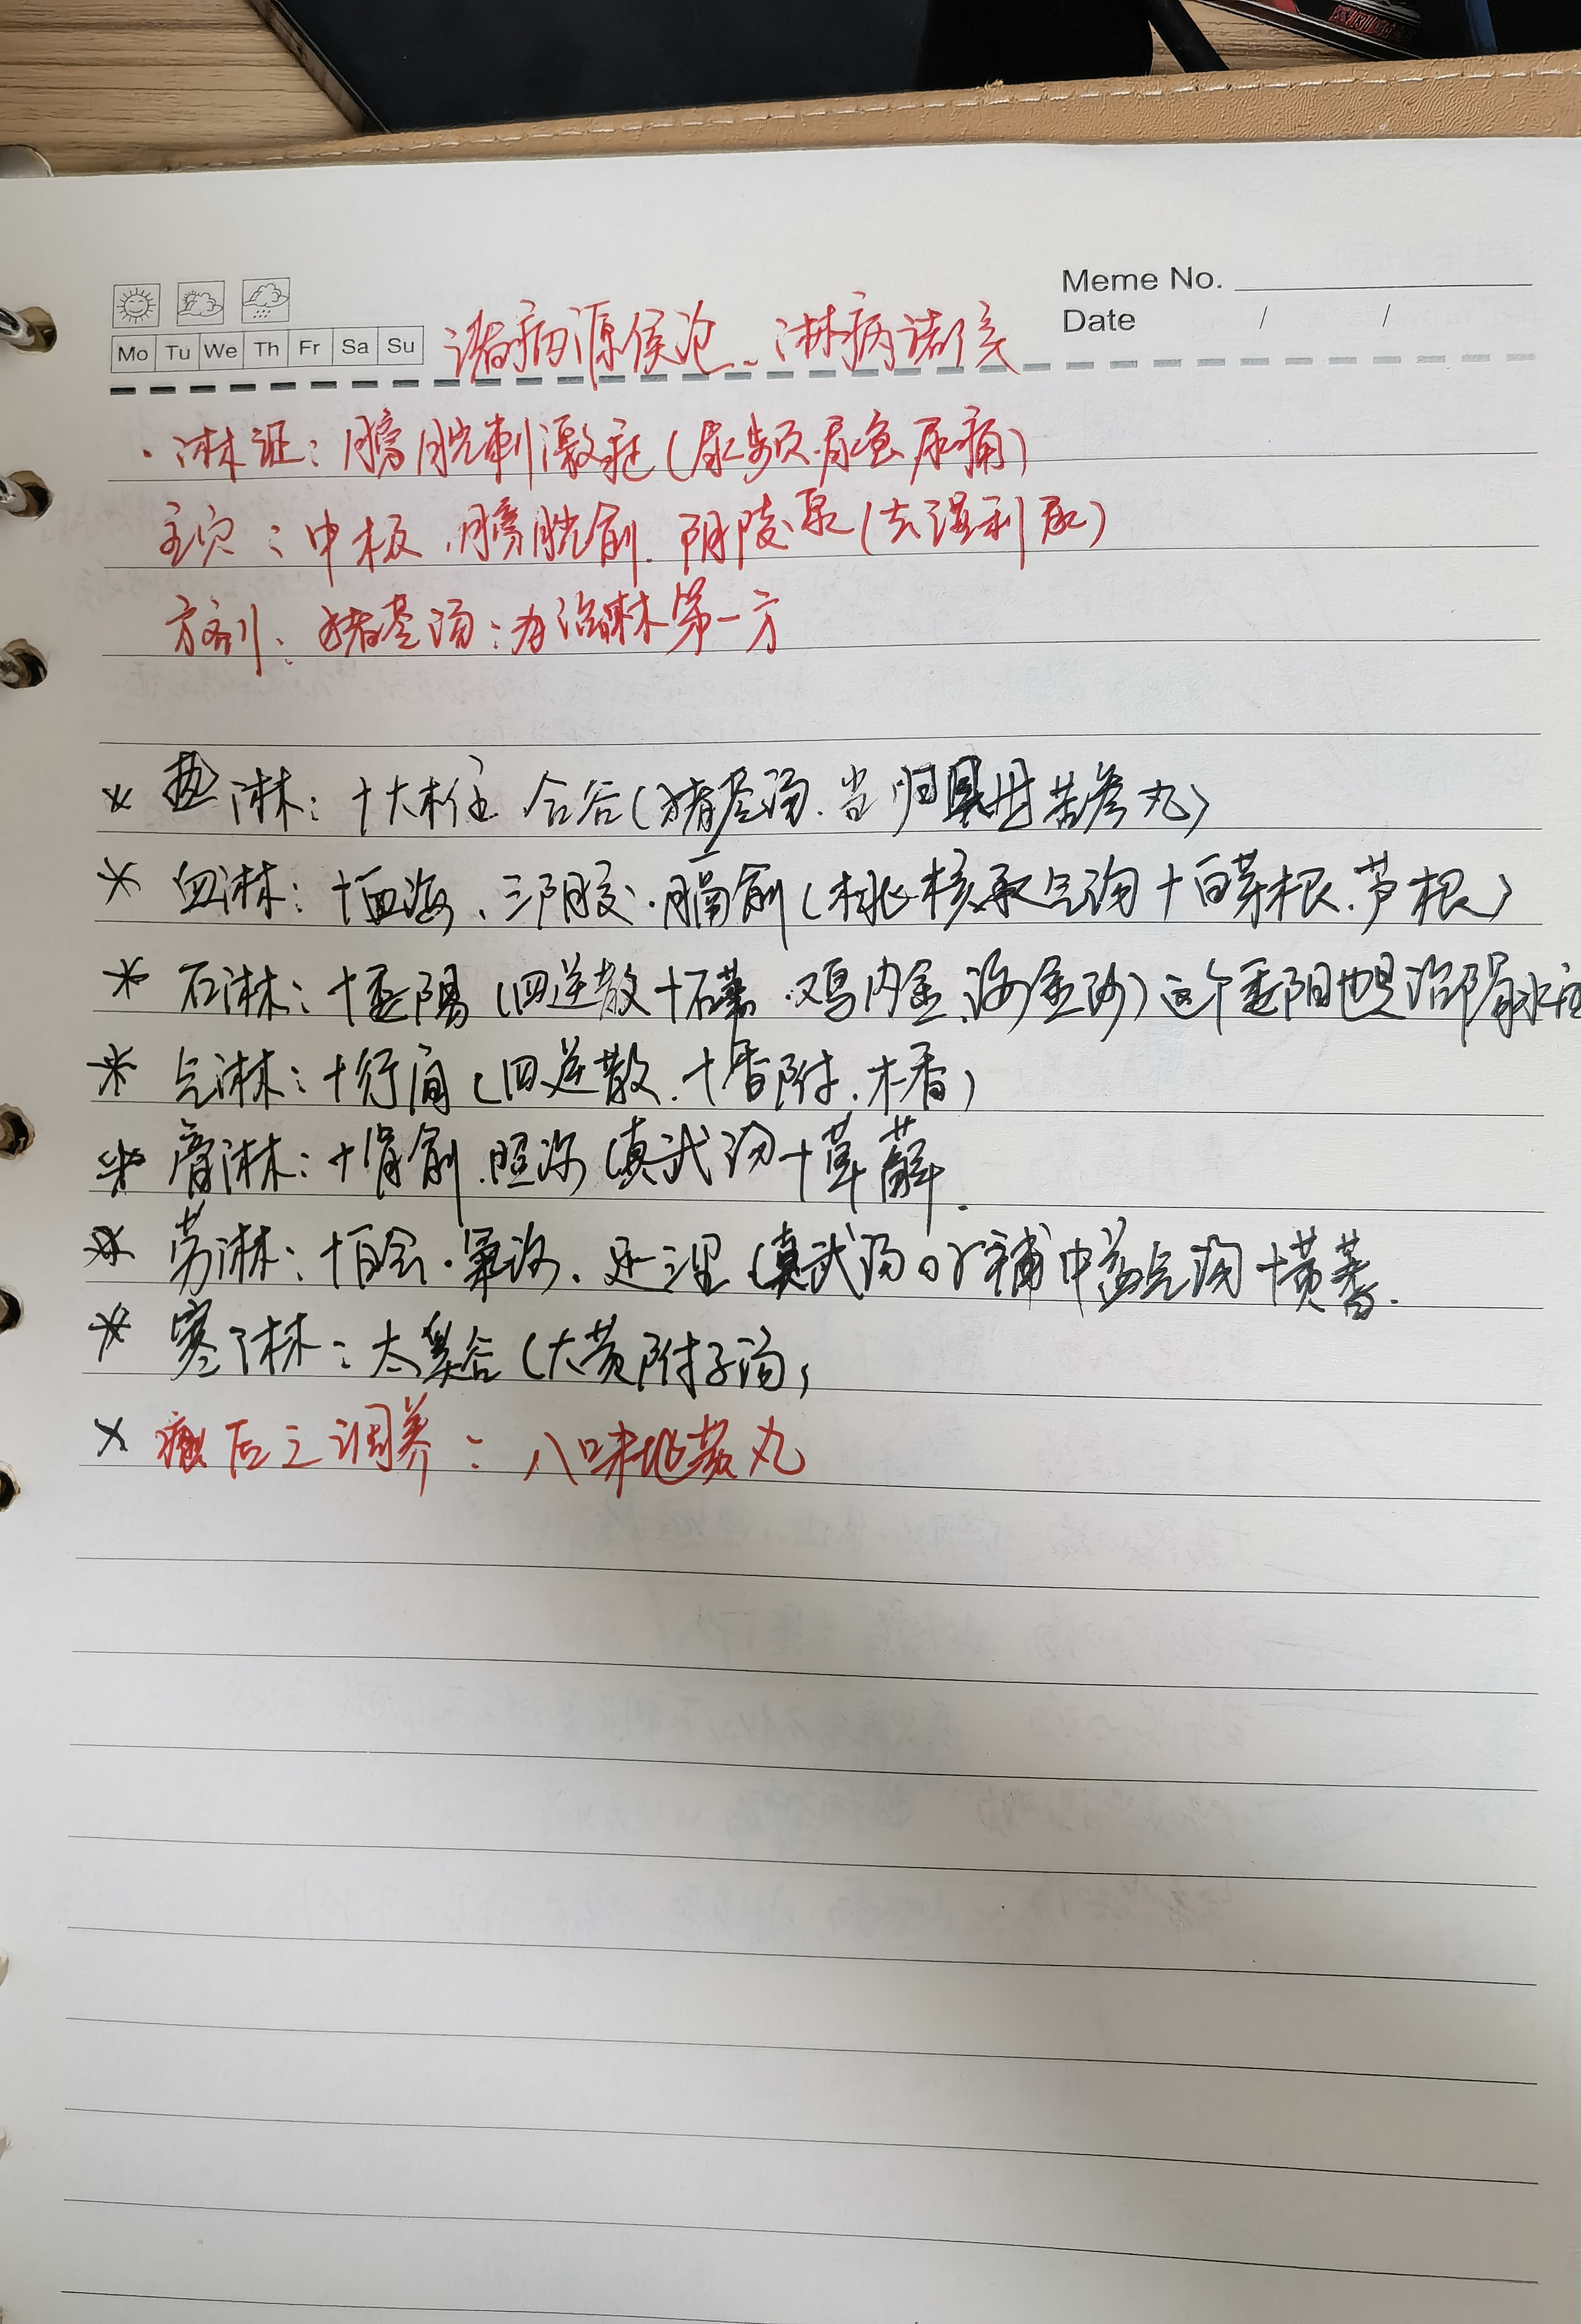 Meme No.
Date / /
Mo Tu We Th Fr Sa Su
诸病源候论、淋病诸候
· 淋证：膀胱刺激症（尿频.尿急.尿痛）
主穴：中极.膀胱俞.阴陵泉（去湿利尿）
方剂：猪苓汤：为治淋第一方
* 热淋：+大椎 合谷（猪苓汤.当归贝母苦参丸）
* 血淋：+血海、三阴交.膈俞（桃核承气汤+白茅根.芦根）
* 石淋：+委阳（四逆散+石苇.鸡内金.海金沙）这个委阳也是治肾水
* 气淋：+行间（四逆散.+香附.木香）
* 膏淋：+肾俞.照海（真武汤+萆薢.
* 劳淋：+百会.气海.足三里（真武汤or補中益气汤+黄蓍.
* 寒淋：太溪（大黄附子汤）
* 病后之调养：八味地黄丸